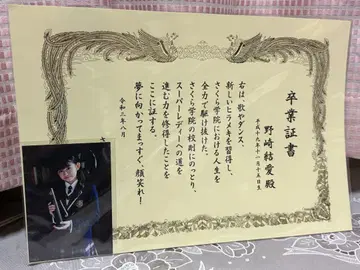 卒業証書
野崎結愛殿
平成十九年十一月十五日生
右は、歌やダンス、
新しいヒラメキを習得し、
さくら学院における人生を
全力で駆け抜けた。
さくら学院の校則にのっとり、
スーパーレディーへの道を
進む力を修得したことを
ここに証する。
夢に向かってまっすぐ、顔笑れ！
令和三年八月